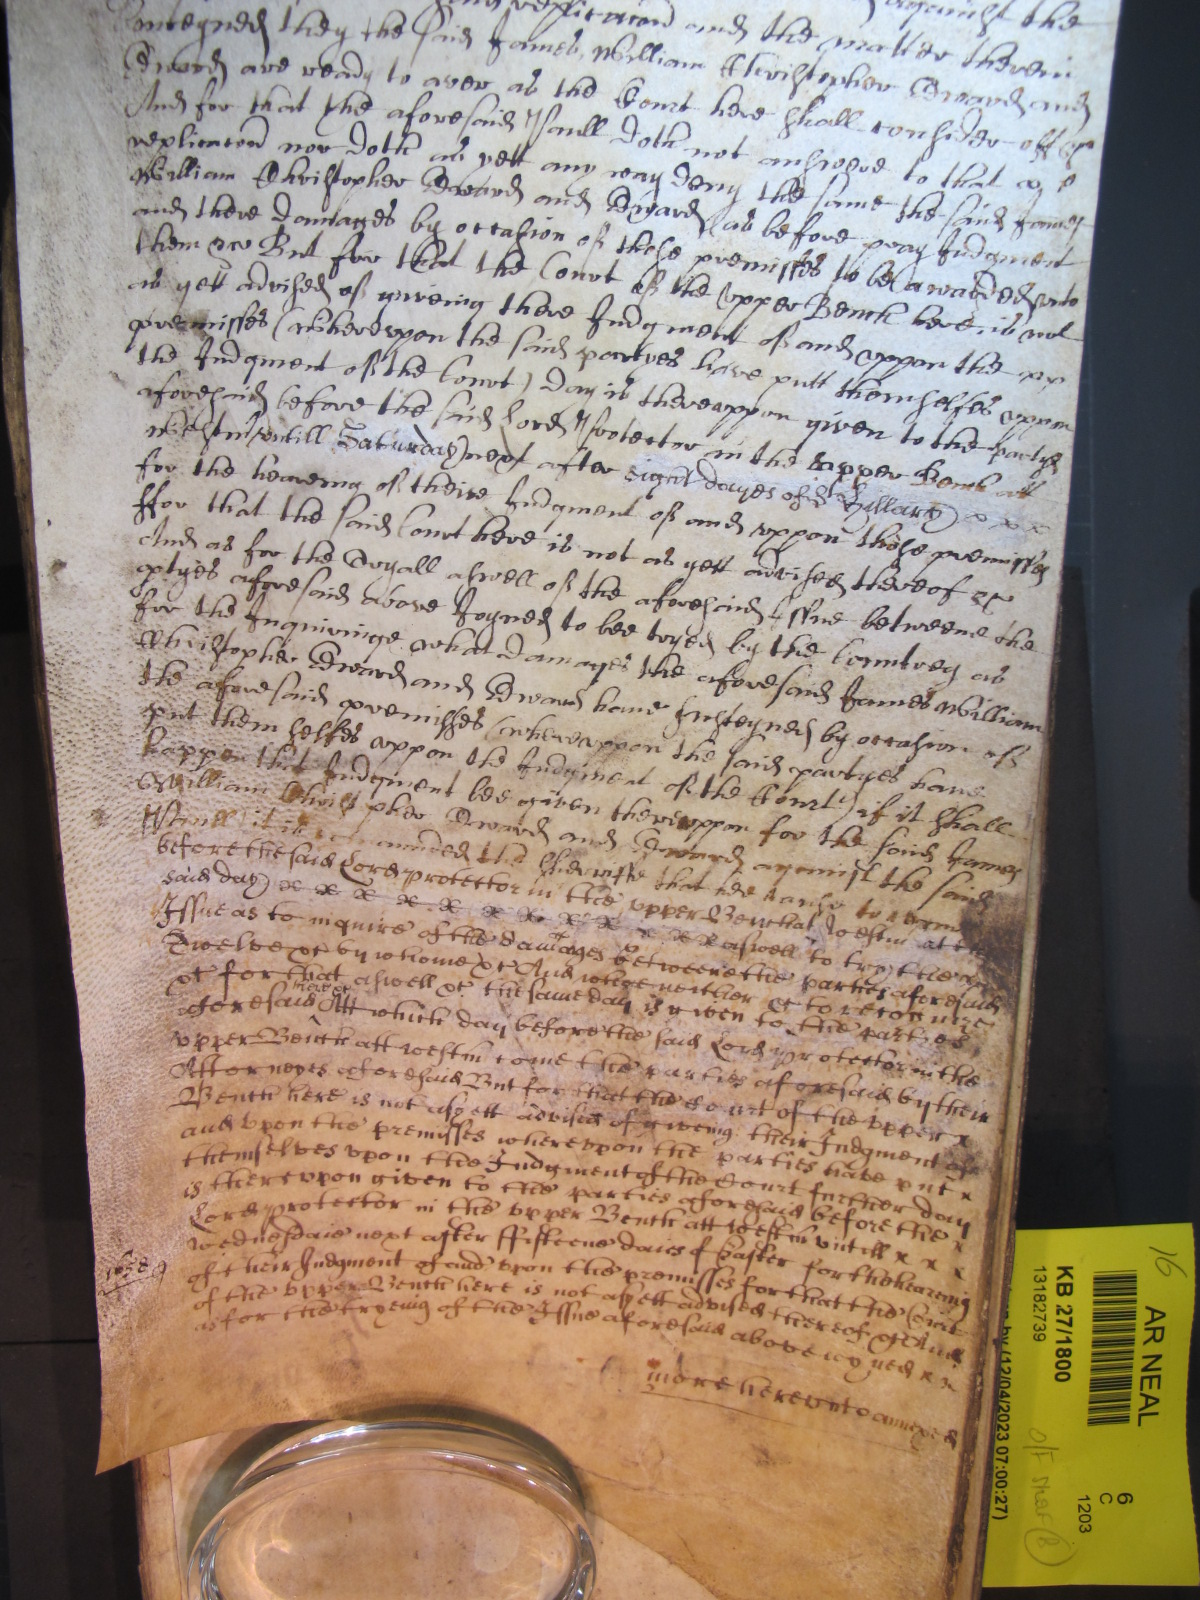 said replication and the matter therein
Conteyned they the said James, William Christopher Edward and
Edward are ready to aver as the Court here shall consider off &c
And for that the aforesaid Paull doth not answere to that
replicacion nor doth as yett any way deny the same the said James
William Christopher Edward and Edward as before pray Judgment
and there damages by occasion of those premisses to be awarded unto
them &c But for that the Court of the upper Bench here is not
as yett advised of giveing there Judgment of and uppon the xx
premisses (whereuppon the said partyes have putt themselfes uppon
the Judgment of the Court) day is thereuppon given to the partyes
aforesaid before the said Lord Protector in the upper Bench att
Westm untill Saturday next after eight dayes of St Hillary x x x
for the heareing of theire Judgment of and uppon those premisses
ffor that the said Court here is not as yett advised thereof &c
And as for the tryall aswell of the aforesaid Issue betweene the
ptyes aforesaid above Joyned to bee tryed by the Countrey as
for the Inquiringe what damages the aforesaid James William
Christopher Edward and Edward have susteyned by occasion of
the aforesaid premisses (whereuppon the said partyes have
put them selfes uppon the Judgment of the Court) if it shall
happen that Judgment bee given thereuppon for the said James
William Christopher Edward and Edward against the said
Paull it is comanded the Sheriffe that hee cause to come
before the said Lord protector in the upper Bench at Westm at the
said day x x x x x x x x x x aswell to try the
Issue as to inquire of the damages betweene the parties aforesaid
Twelve &c by whome &c And whoe neither &c to recognize
&c for that aswell &c the same day is given to the parties
aforesaid there &c Att which day before the said Lord protector in the
upper Bench att westm come the parties aforesaid by their
Attorneyes aforesaid But for that the Court of the upper x
Bench here is not as yett advised of giveing their Judgment of
and upon the premisses whereupon the parties have put x
themselves upon the Judgment of the Court further day
is thereupon given to the parties aforesaid before the x
Lord protector in the upper Bench att westm untill x x x
wednesdaie next after ffifteene daies of Easter for the hearing
of their Judgment of and upon the premisses for that the Court
of the upper Bench here is not as yett advised thereof &c And
as for the tryeing of the Issue aforesaid above joyned x x
more hereunto annexed
1658
AR NEAL
6
C
1203
KB 27/1800
13182739
by (12/04/2023 07:00:27)
16